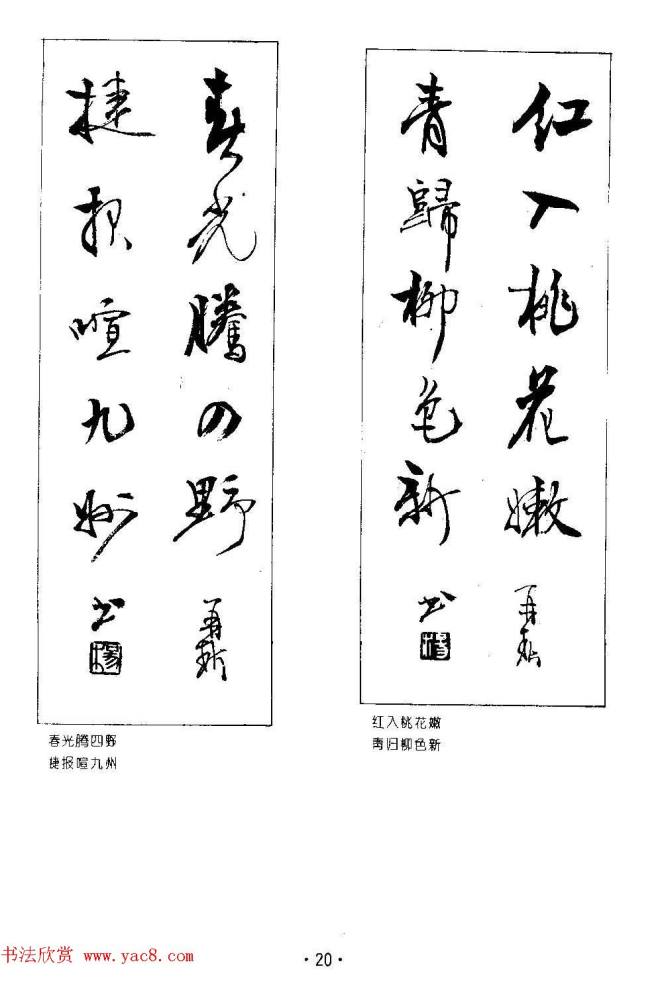 红入桃花嫩
青歸柳色新 书
红入桃花嫩
青归柳色新
春光騰四野
捷报喧九州 书
春光腾四野
捷报喧九州
·20·
书法欣赏 www.yac8.com